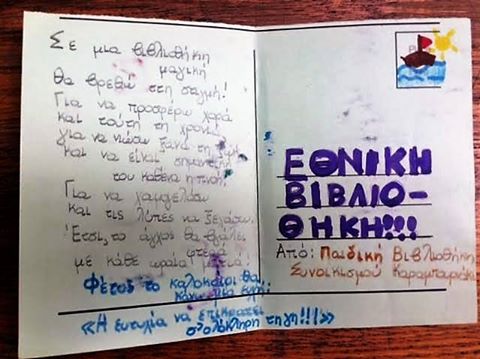 Σε μια βιβλιοθήκη
μαγική
θα βρεθώ στη στιγμή!
Για να προσφέρω χαρά
και τούτη τη χρονιά,
για να νιώσω ξανά τη
και να είναι σημαντική
του καθένα η πνοή!
Για να χαμογελάσω
και τις λύπες να ξεχάσω.
Έτσι, το άγχος θα βγάλει
φτερά
με κάθε ωραία ματιά!
Φέτος το καλοκαίρι θα
κάνω μια ευχή:
«Η ευτυχία να επικρατεί
σ' ολόκληρη τη γη!!!»
ΕΘΝΙΚΗ
ΒΙΒΛΙΟ-
ΘΗΚΗ!!!
Από: Παιδική Βιβλιοθήκη
Συνοικισμού